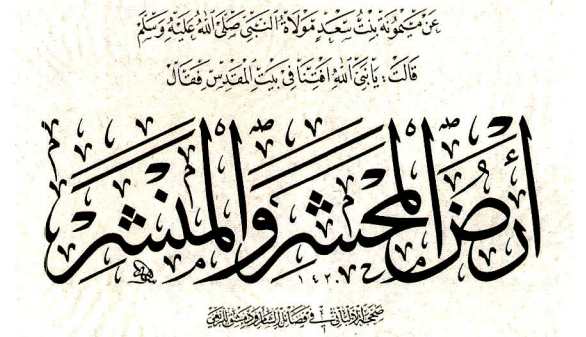 عَنْ مَيْمُونَةَ بِنْتِ سَعْدٍ مَوْلَاةِ النَّبِيِّ صَلَّى اللهُ عَلَيْهِ وَسَلَّمَ
قَالَتْ: يَا نَبِيَّ اللهِ أَفْتِنَا فِي بَيْتِ المَقْدِسِ فَقَالَ
أَرْضُ الْمَحْشَرِ وَالْمَنْشَرِ
١٤٢٠
صححه الألباني في فضائل الشام ودمشق للربعي